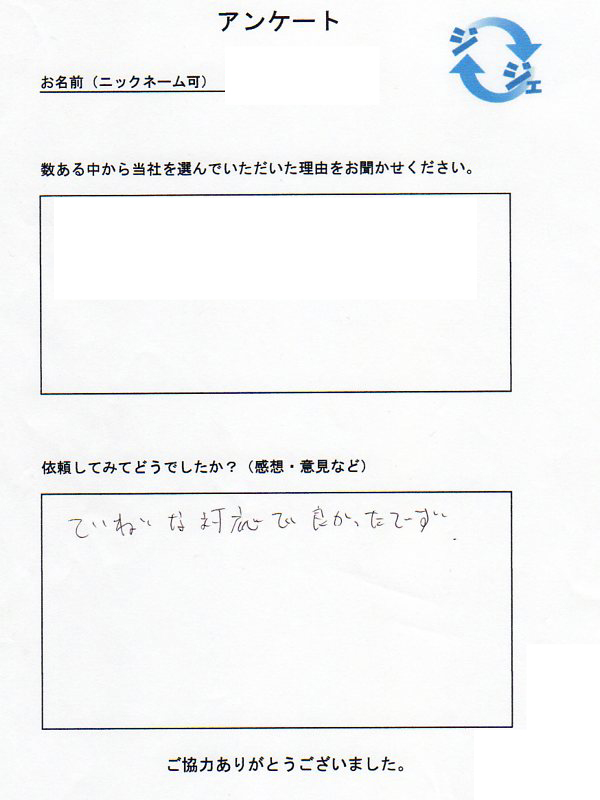 アンケート
ジジェ
お名前（ニックネーム可）
数ある中から当社を選んでいただいた理由をお聞かせください。
依頼してみてどうでしたか？（感想・意見など）
ていねいな対応で良かったでーす.
ご協力ありがとうございました。